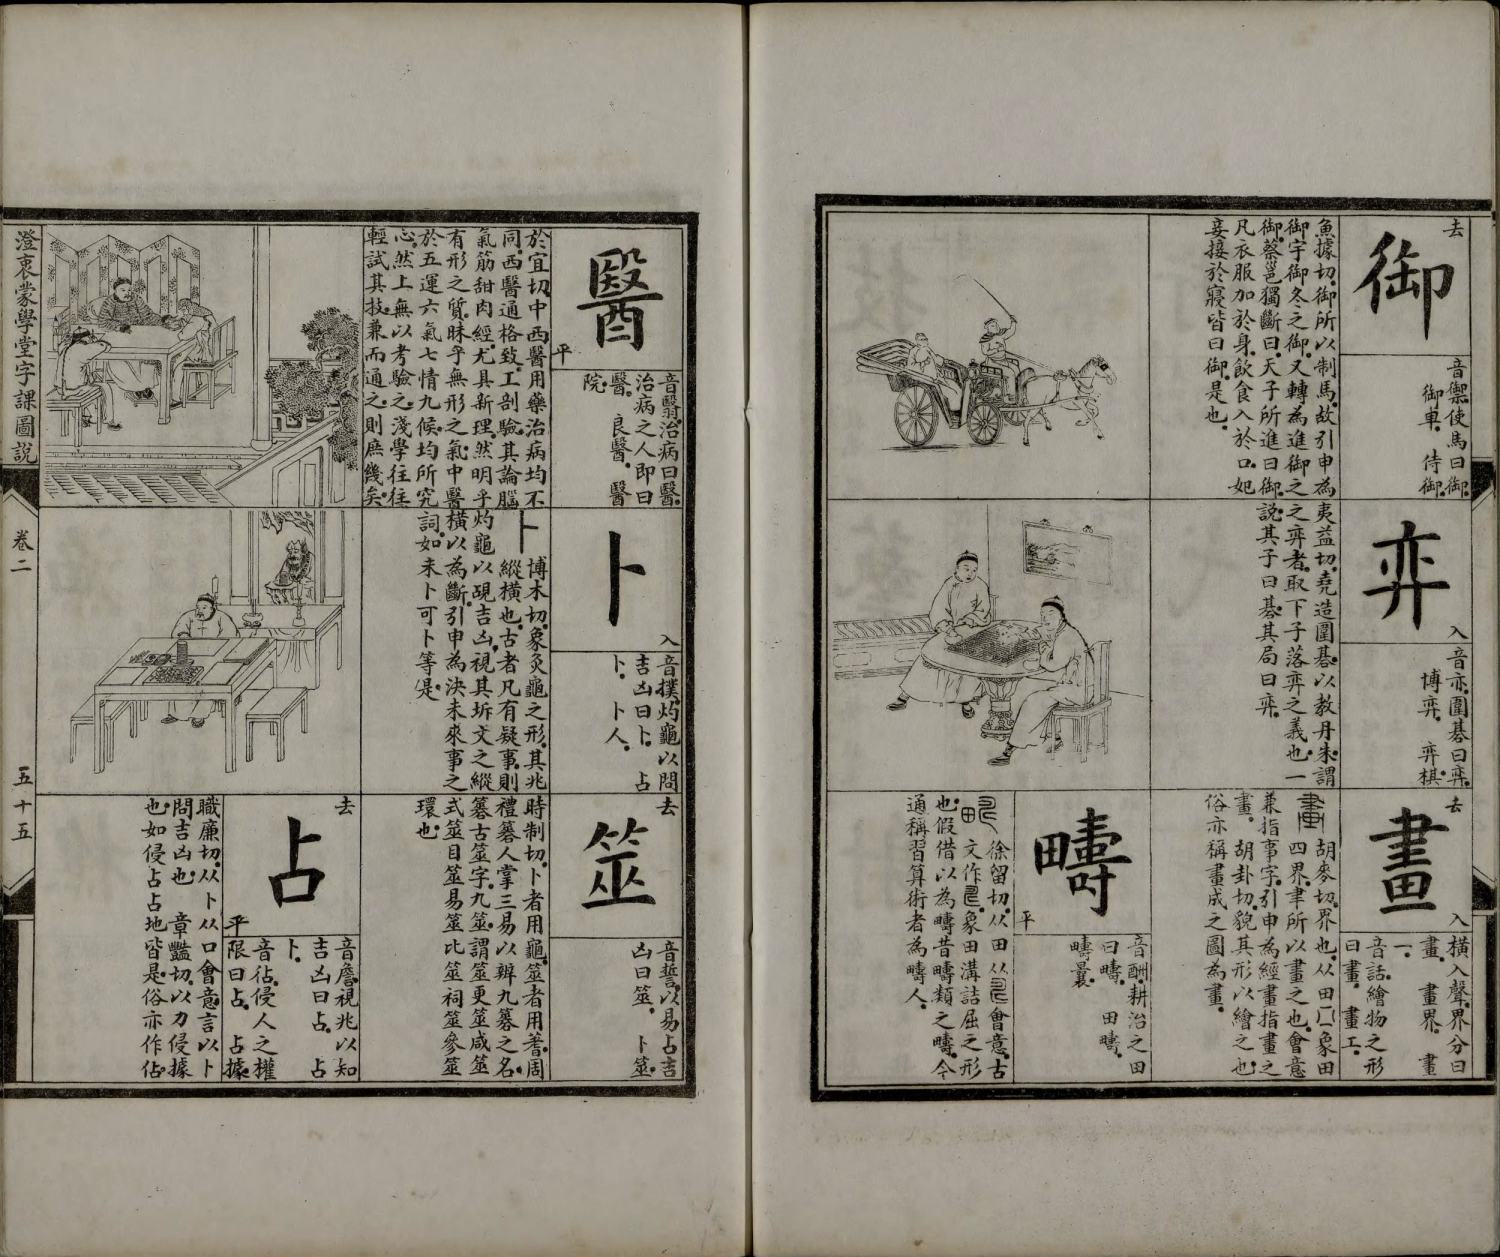 御
去
音禦使馬曰御。
御車。侍御。
魚據切。御所以制馬。故引申為
御宇御冬之御。又轉為進御之
御。蔡邕獨斷曰。天子所進曰御。
凡衣服加於身。飲食入於口。妃
妾接於寢。皆曰御。是也。
弈
入
音亦。圍碁曰弈。
博弈。弈棋。
夷益切。堯造圍碁。以教丹朱。謂
之弈者。取下子落弈之義也。一
說。其子曰碁。其局曰弈。
畫
去
入
橫入聲。界分曰
畫。畫界。畫
一。
音話。繪物之形
曰畫。畫工。
胡麥切。界也。从田囗象田
四界。聿所以畫之也。會意
兼指事字。引申為經畫指畫之
畫。胡卦切。貌其形以繪之也。
俗亦稱畫成之圖為畫。
疇
平
音酬。耕治之田
曰疇。田疇。
疇曩。
徐留切。从田从會意。古
文作象田溝詰屈之形
也。假借以為疇昔疇類之疇。今
通稱習算術者為疇人。
醫
平
音翳。治病曰醫。
治病之人即曰
醫。良醫。醫
院。
於宜切。中西醫用藥治病均不
同。西醫通格致。工剖驗。其論腦
氣筋甜肉經。尤具新理。然明乎
有形之質。昧乎無形之氣。中醫
於五運六氣七情九候。均所究
心。然上無以考驗之。淺學往往
輕試其技。兼而通之。則庶幾矣。
卜
入
音撲。灼龜以問
吉凶曰卜。占
卜。卜人。
卜
博木切。象灸龜之形。其兆
縱橫也。古者凡有疑事。則
灼龜以硯吉凶。視其坼文之縱
橫以為斷。引申為決未來事之
詞。如未卜可卜等是。
筮
去
音誓。以易占吉
凶曰筮。卜筮。
時制切。卜者用龜。筮者用蓍。周
禮簭人掌三易。以辨九簭之名。
簭古筮字。九筮。謂筮更筮咸筮
式筮目筮易筮比筮祠筮參筮
環也。
占
去
平
音詹。視兆以知
吉凶曰占。占
卜。
音佔。侵人之權
限曰占。占據。
職廉切。从卜从口會意。言以卜
問吉凶也。章豔切。以力侵據
也。如侵占占地皆是。俗亦作佔。
澄衷蒙學堂字課圖說
卷二
五十五